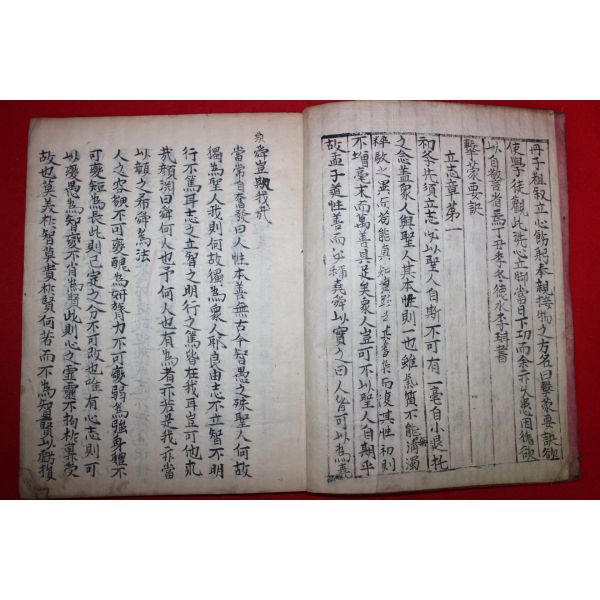 冊子粗叙立心飭躬奉親接物之方名曰擊蒙要訣欲
使學徒觀此洗心立脚當日下功而余亦久患因循欲
以自警省焉丁丑季冬德水李珥書
擊蒙要訣
立志章第一
初學先須立志必以聖人自期不可有一毫自小退托
之念盖衆人與聖人其本性則一也雖氣質不能無淸濁
粹駁之異而苟能真知實踐去其舊染而復其性初則
不增毫末而萬善具足矣衆人豈可不以聖人自期乎
故孟子道性善而必稱堯舜以實之曰人皆可以爲堯
舜豈欺我哉
當常自奮發曰人性本善無古今智愚之殊聖人何故
獨爲聖人我則何故獨爲衆人耶良由志不立智不明
行不篤耳志之立智之明行之篤皆在我耳豈可他求
哉顔淵曰舜何人也予何人也有爲者亦若是我亦當
以顔之希舜爲法
人之容貌不可變醜爲姸膂力不可變弱爲强身體不
可變短爲長此則已定之分不可改也唯有心志則可
以變愚爲智變不肖爲賢此則心之虛靈不拘於稟受
故也莫美於智莫貴於賢何苦而不爲智賢以虧損